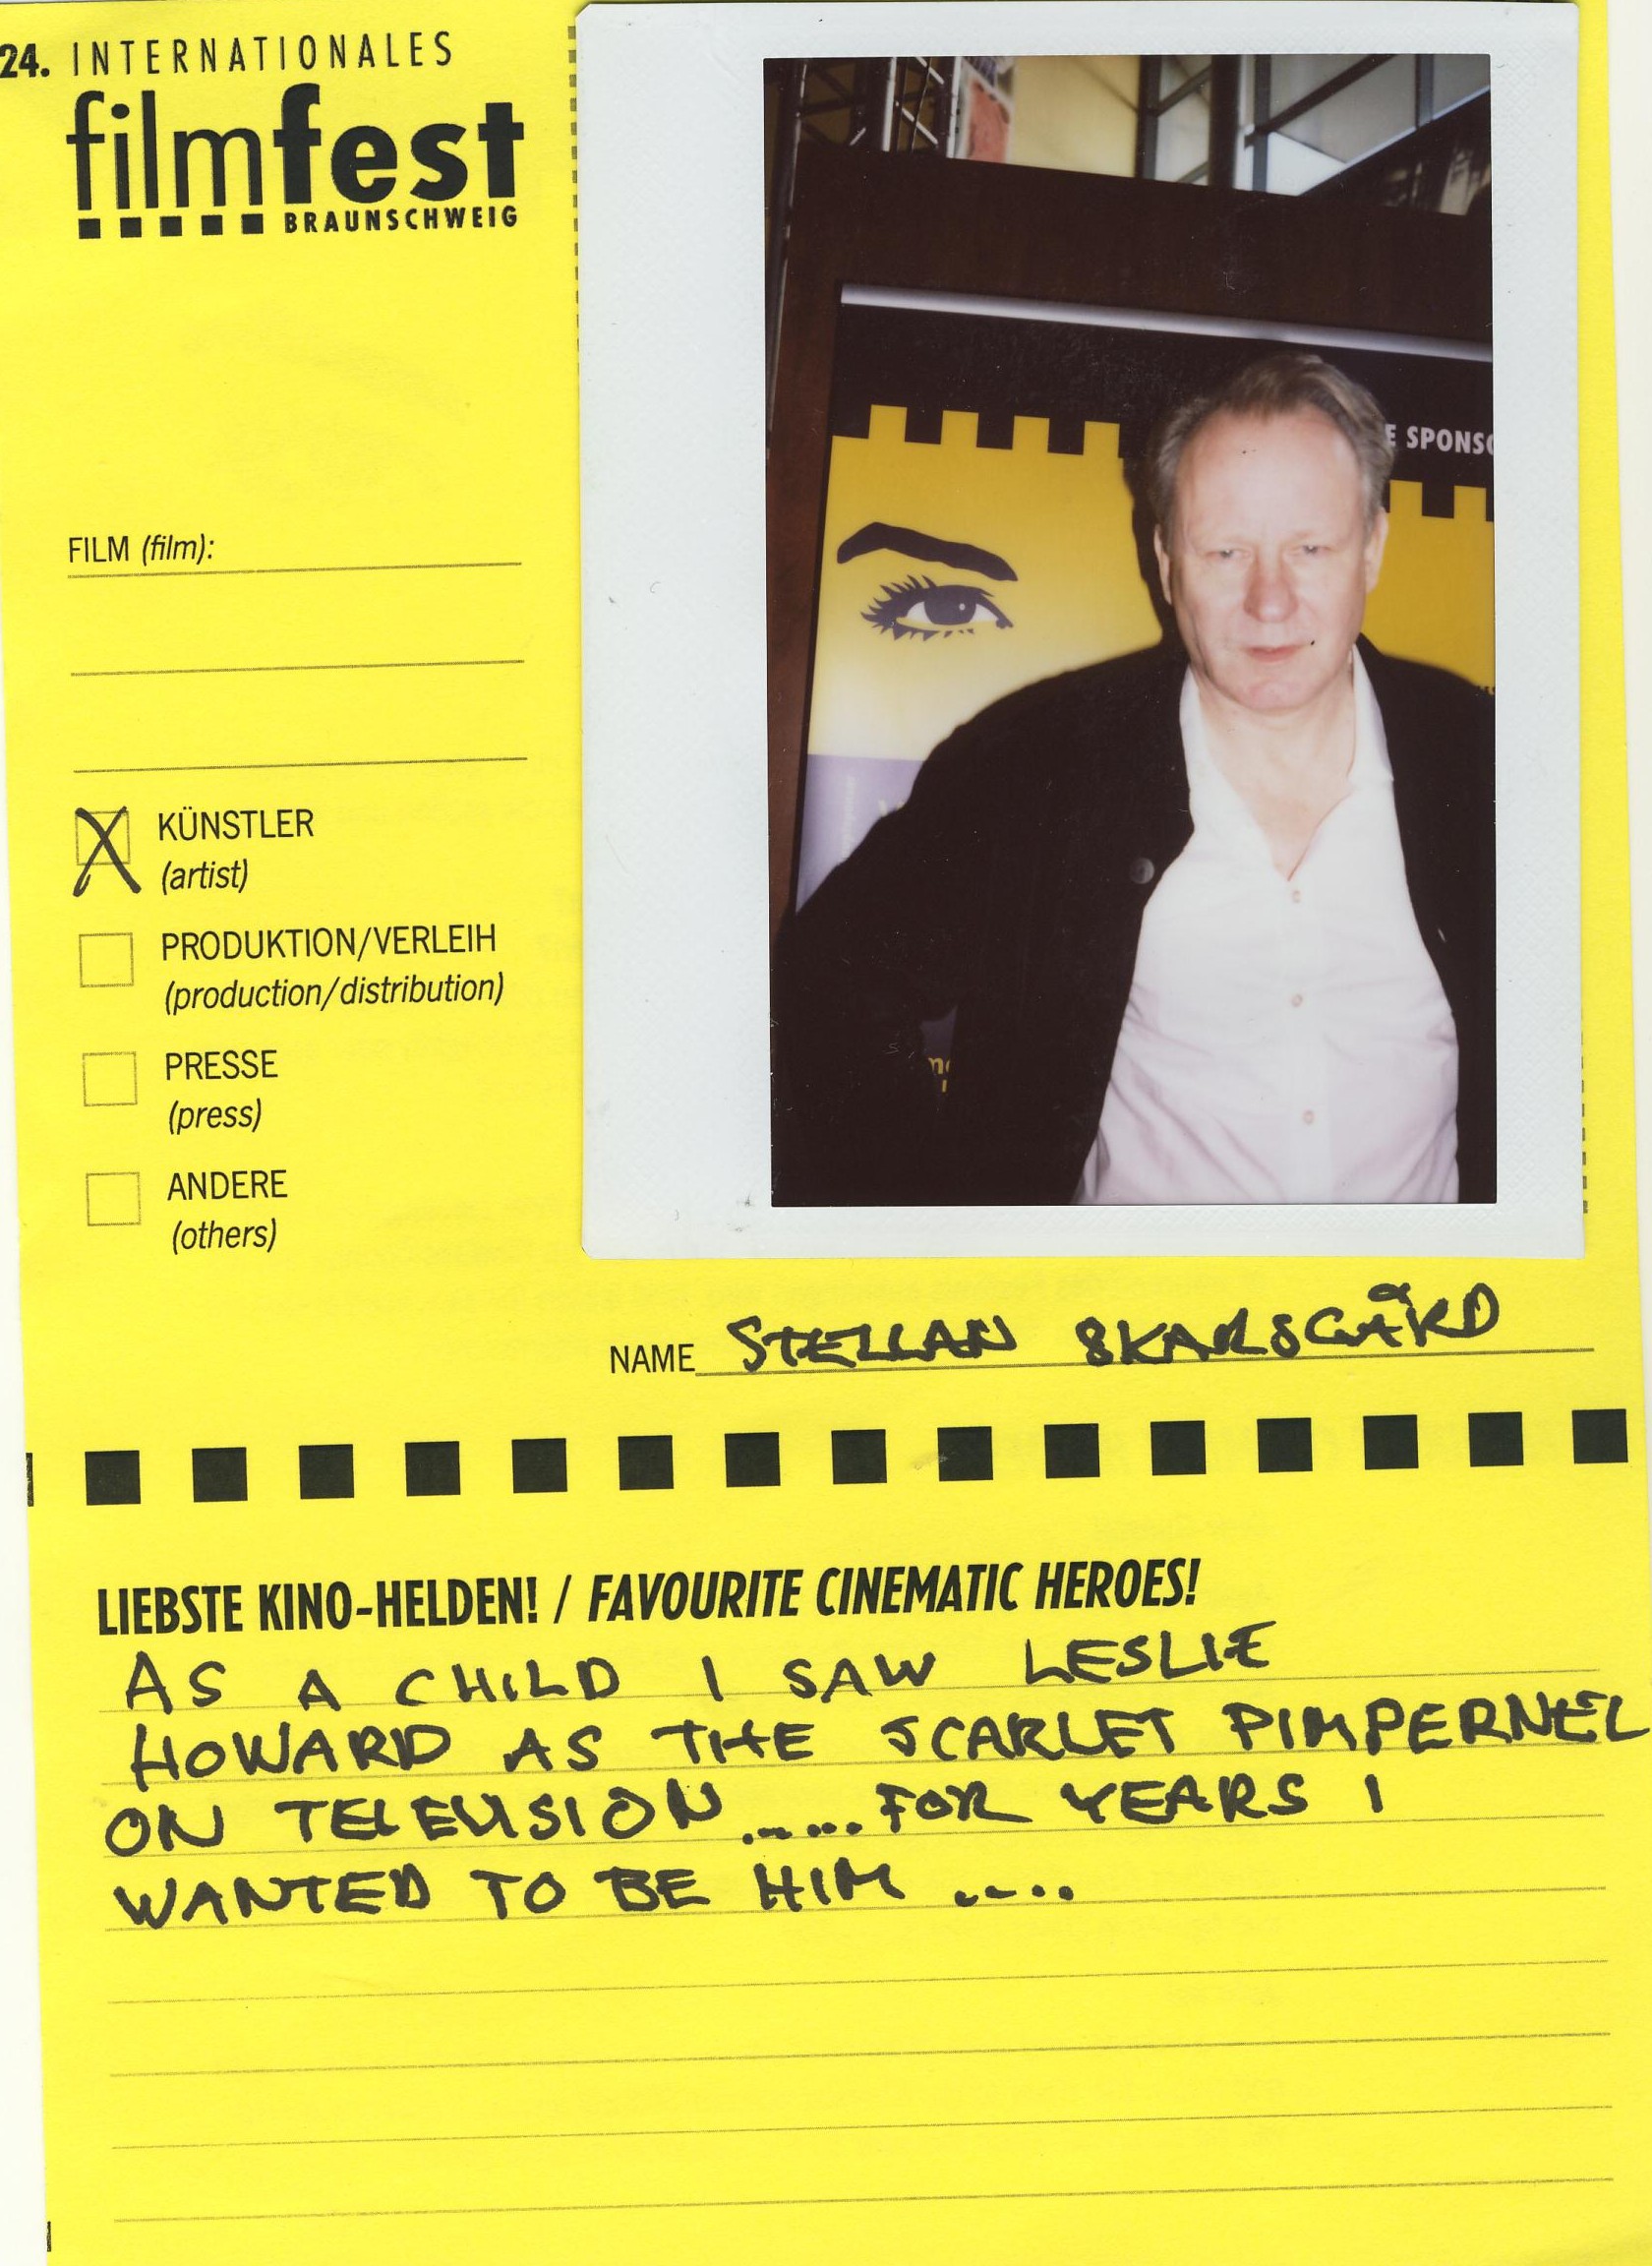 24. INTERNATIONALES
filmfest
BRAUNSCHWEIG
E SPONSO
FILM (film):
X KÜNSTLER
(artist)
PRODUKTION/VERLEIH
(production/distribution)
PRESSE
(press)
ANDERE
(others)
NAME STELLAN SKARSGÅRD
LIEBSTE KINO-HELDEN! / FAVOURITE CINEMATIC HEROES!
AS A CHILD I SAW LESLIE
HOWARD AS THE SCARLET PIMPERNEL
ON TELEVISION.....FOR YEARS I
WANTED TO BE HIM ....